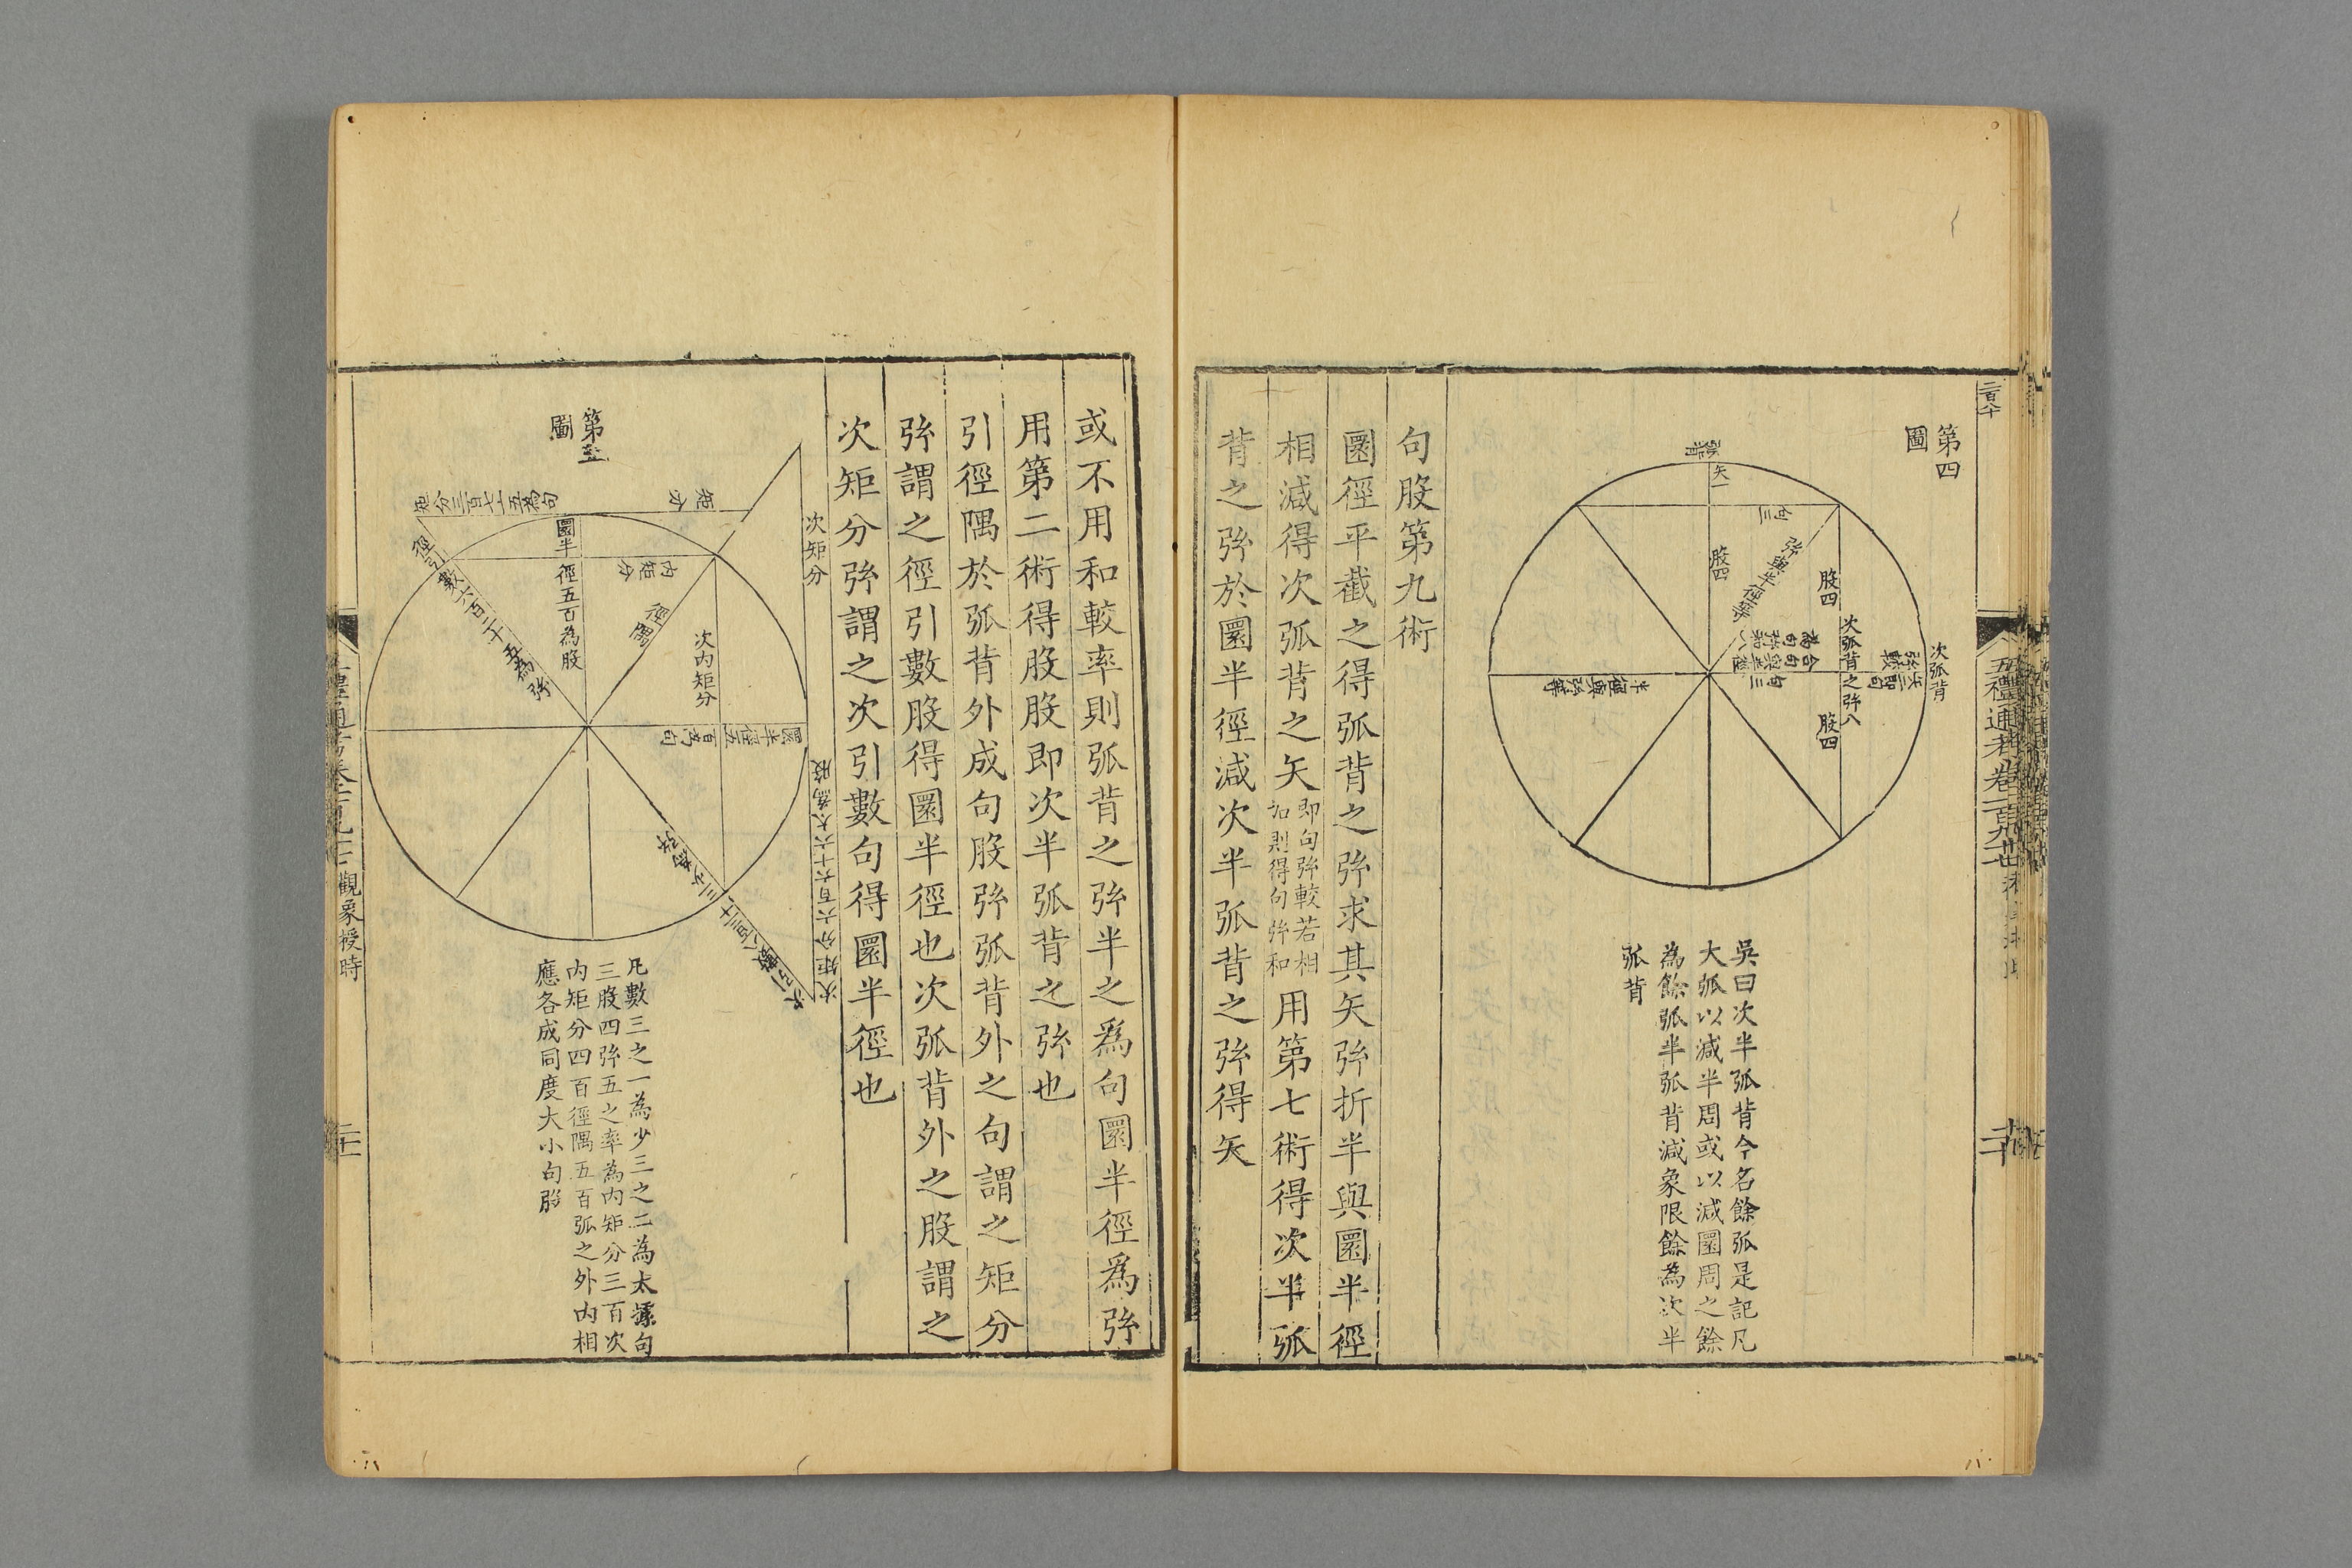 第四
圖
弧背
矢一
句三
股四
弦與半徑等
股四
次弧背之弦八
股四
次弧背
半徑與弦等
吳曰次半弧背今名餘弧是記凡
大弧以減半周或以減圜周之餘
為餘弧半弧背減象限餘為次半
弧背
句股第九術
圜徑平截之得弧背之弦求其矢弦折半與圜半徑
相減得次弧背之矢即句弦較若相加則得句弦和用第七術得次半弧
背之弦於圜半徑減次半弧背之弦得矢
五禮通考卷一百九十
或不用和較率則弧背之弦半之爲句圜半徑爲弦
用第二術得股股即次半弧背之弦也
引徑隅於弧背外成句股弦弧背外之句謂之矩分
弦謂之徑引數股得圜半徑也次弧背外之股謂之
次矩分弦謂之次引數句得圜半徑也
第五
圖
矩分三百七十五為句
矩分
次矩分
圜半徑五百為股
內矩分
徑隅
次內矩分
徑引數六百二十五為弦
圜半徑五百為句
次矩分六百六十六太為股
次引數八百三十三少為弦
凡數三之一為少三之二為太據句
三股四弦五之率為內矩分三百次
內矩分四百徑隅五百弧之外內相
應各成同度大小句股
觀象授時